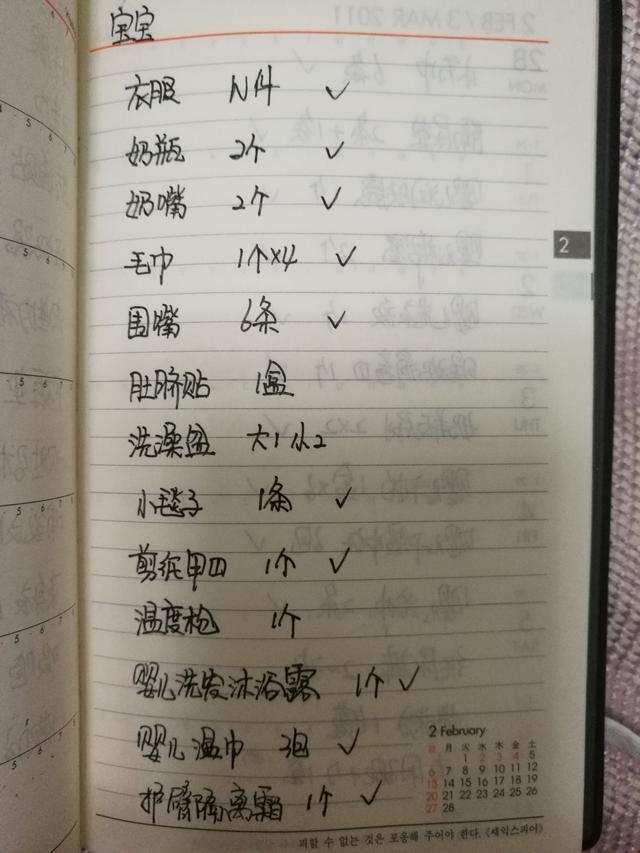 宝宝
衣服 N件 ✓
奶瓶 2个 ✓
奶嘴 2个 ✓
毛巾 1个×4 ✓
围嘴 6条 ✓
肚脐贴 1盒
洗澡盆 大1 小2
小毯子 1条 ✓
剪纸甲四 1个 ✓
温度枪 1个
婴儿洗发沐浴露 1个 ✓
婴儿温巾 3包 ✓
护臀隔离霜 1个 ✓
2
2 February
日 月 火 水 木 金 土
1 2 3 4 5
6 7 8 9 10 11 12
13 14 15 16 17 18 19
20 21 22 23 24 25 26
27 28
피할 수 없는 것은 포옹해 주어야 한다. 《셰익스피어》